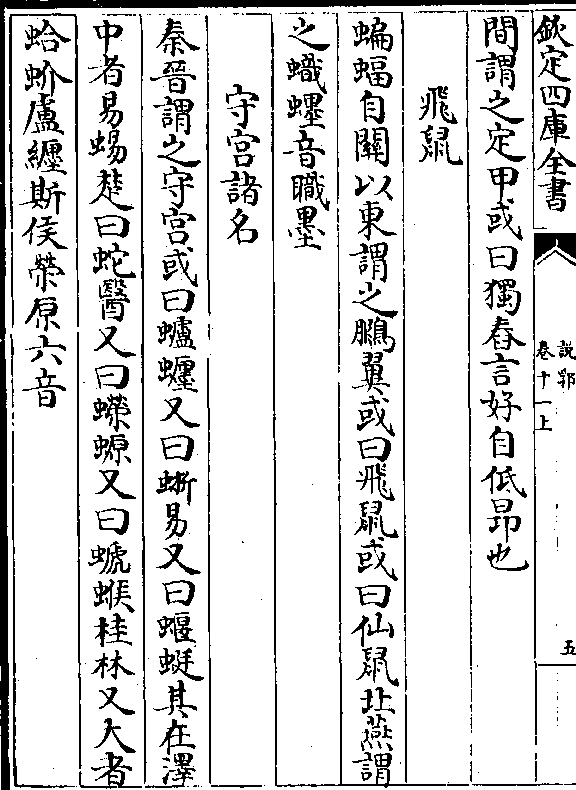 欽定四庫全書
說郛
卷十一上
五
間謂之定甲或曰獨舂言好自低昂也
飛鼠
蝙蝠自關以東謂之鵩翼或曰飛鼠或曰仙鼠北燕謂
之蟙䘃音職墨
守宫諸名
秦晉謂之守宫或曰蠦𧓋又曰蜥易又曰蝘蜓其在澤
中者易蜴楚曰蛇醫又曰蠑螈又曰螔𧋊桂林又大者
蛤蚧盧纒斯侯榮原六音